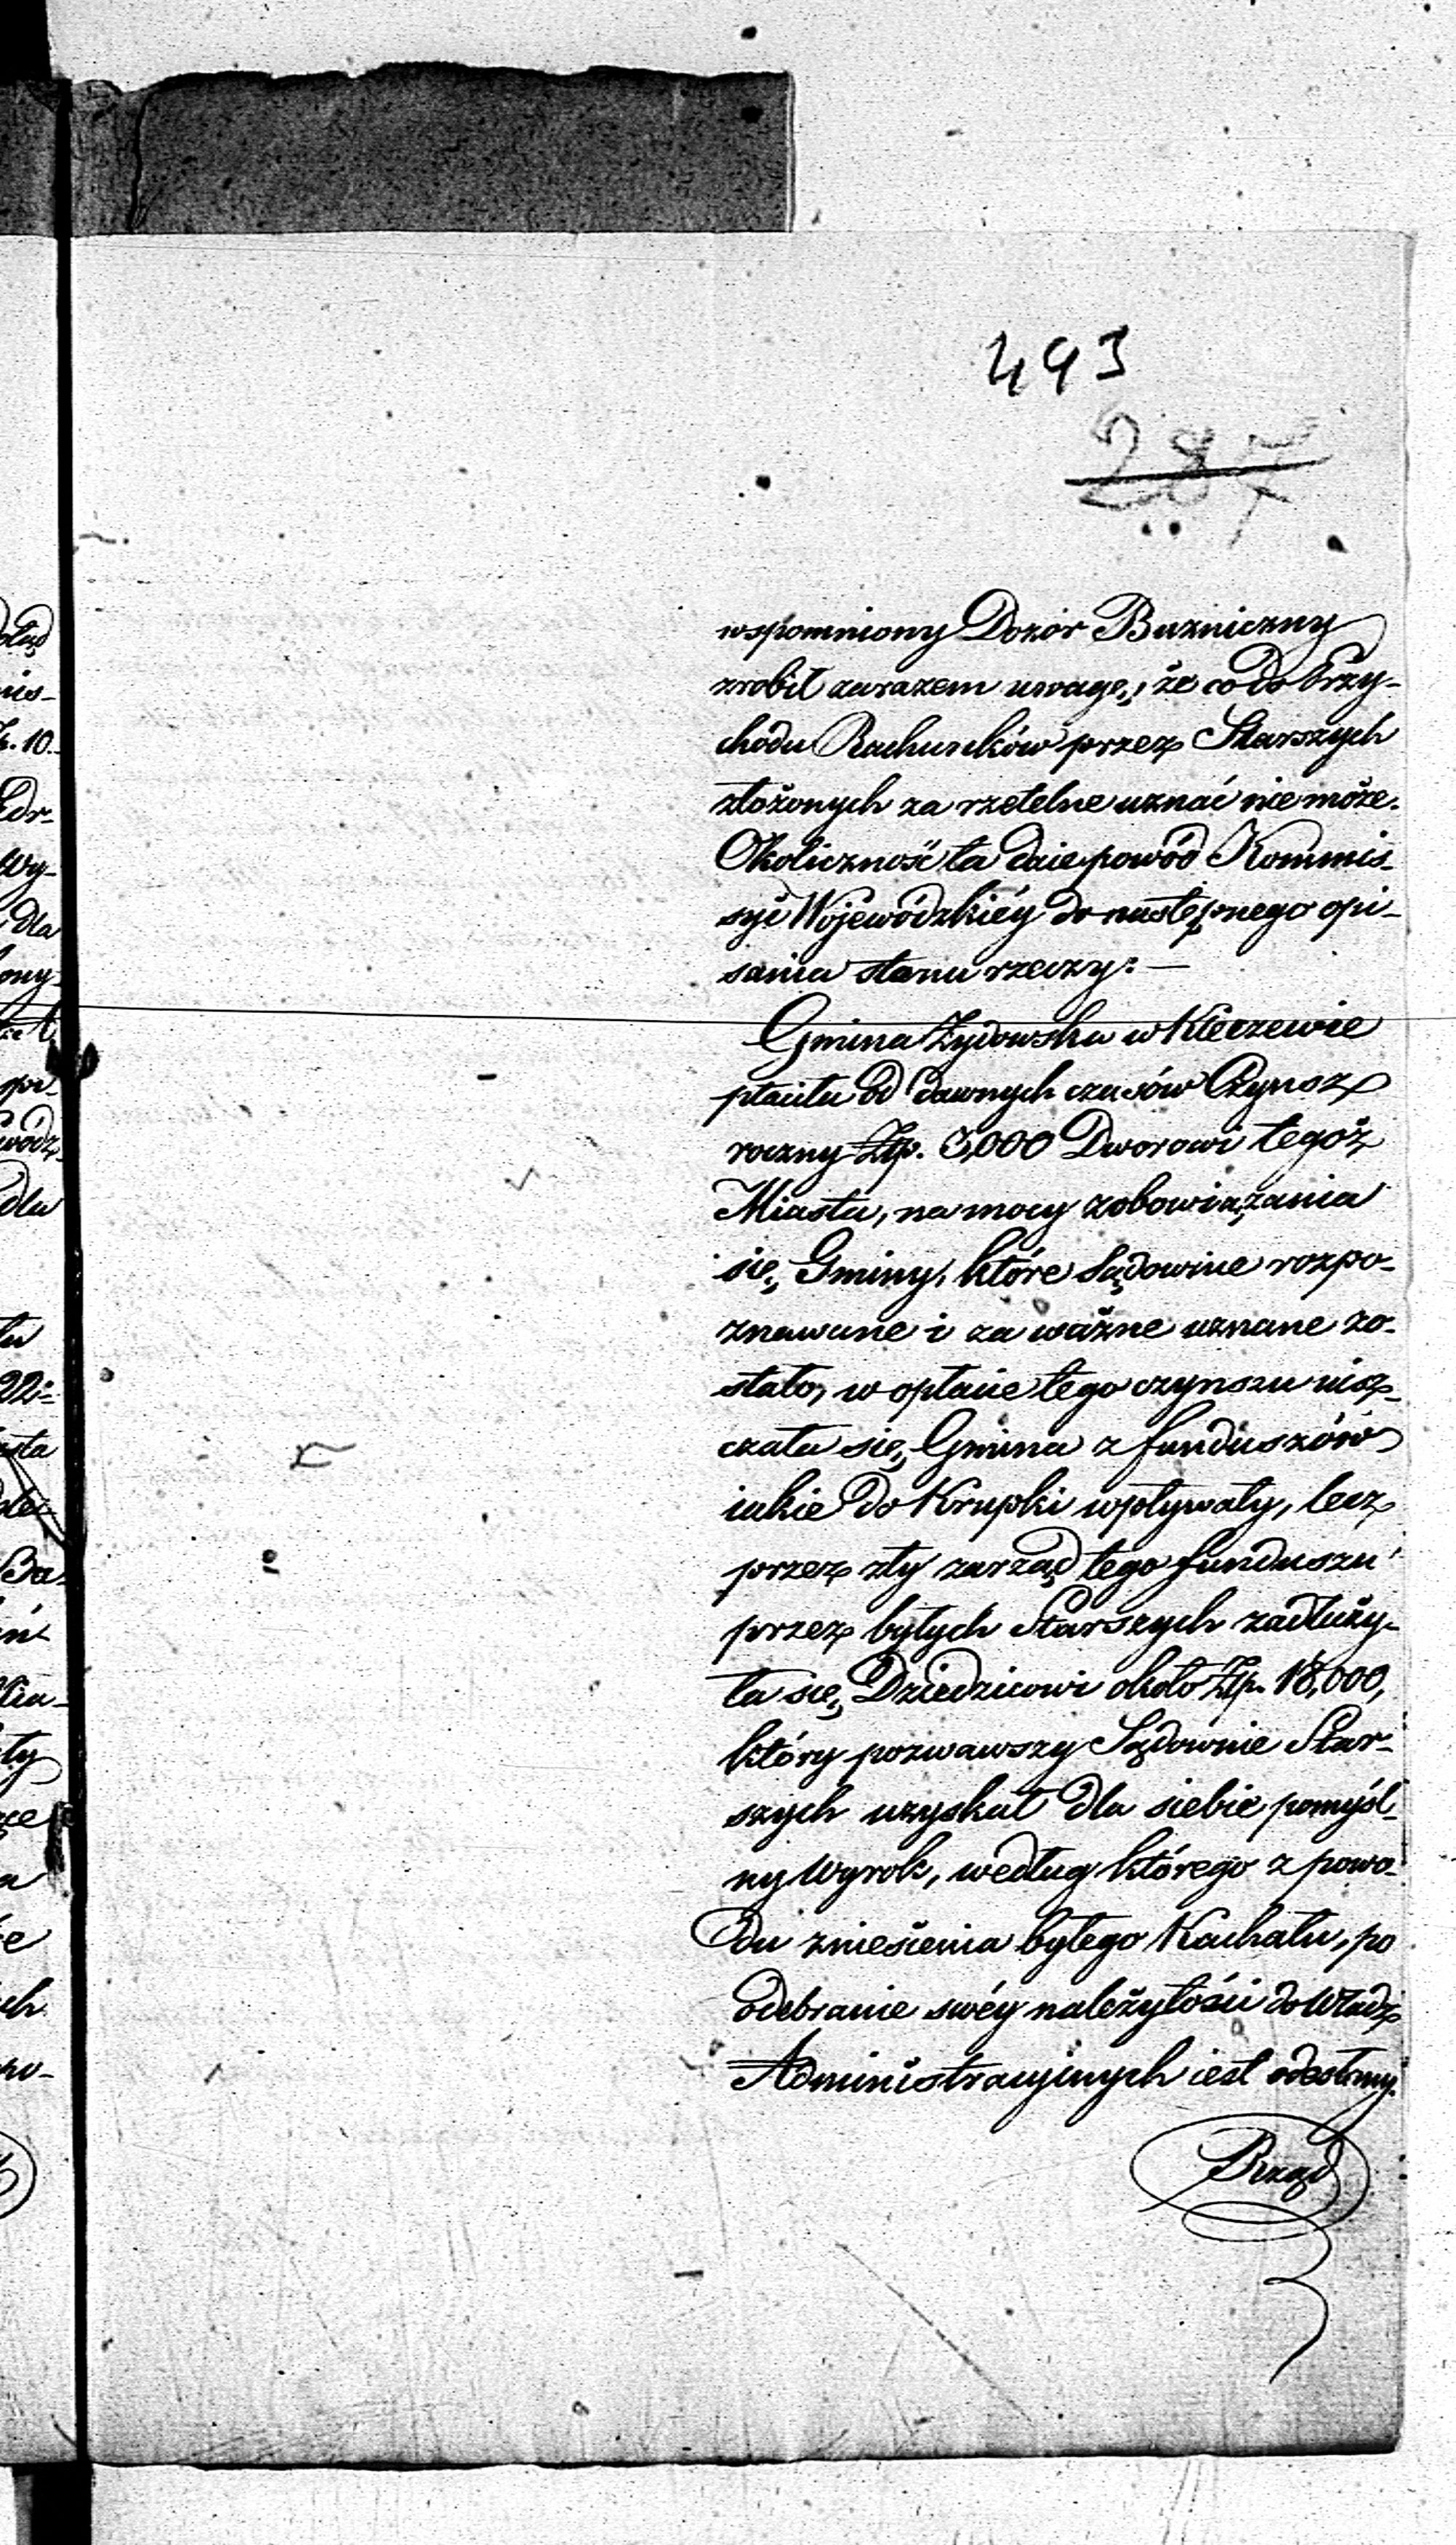 493
287
wspomniony Dozór Bużniczny
zrobił zarazem uwagę, że co do Przy-
chodu Rachunków przez Starszych
złożonych za rzetelne uznać nie może.
Okoliczność ta daie powód Kommis-
syi Wojewódzkiéy do następnego opi-
sania stanu rzeczy: —
Gmina Żydowska w Kleczewie
płaciła od dawnych czasów Czynsz
roczny Złp. 3,000 Dworowi tegoż
Miasta, na mocy zobowiązania
się Gminy, które Sądownie rozpo-
znawane i za ważne uznane zo-
stało, w opłacie tego czynszu uisz-
czała się Gmina z funduszów
iakie do Krupki wpływały, lecz
przez zły zarząd tego funduszu
przez byłych Starszych zadłuży-
ła się Dziedzicowi około Złp. 18,000,
który pozwawszy Sądownie Star-
szych uzyskał dla siebie pomyśl-
ny Wyrok, według którego z powo-
du zniesienia byłego Kachału, po
odebranie swéy należytości do Władz
Administracyinych iest odesłany.
Rząd